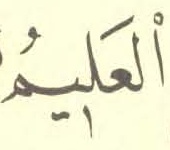 اْلعَلِيمُ